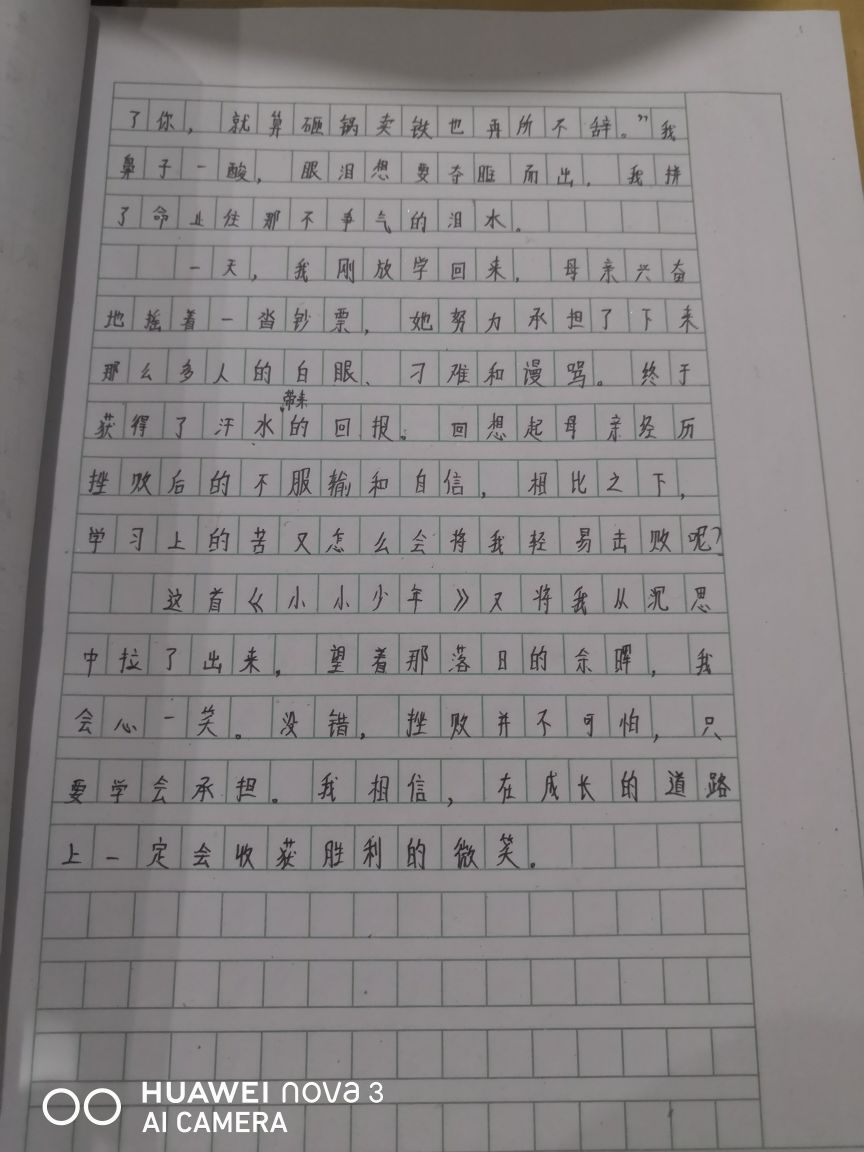 了你，就算砸锅卖铁也再所不辞。”我
鼻子一酸，眼泪想要夺眶而出，我拼
了命止住那不争气的泪水。
一天，我刚放学回来，母亲兴奋
地摇着一沓钞票，她努力承担了下来
那么多人的白眼、刁难和漫骂。终于
获得了汗水带来的回报。回想起母亲经历
挫败后的不服输和自信，相比之下，
学习上的苦又怎么会将我轻易击败呢？
这首《小小少年》又将我从沉思
中拉了出来，望着那落日的余晖，我
会心一笑。没错，挫败并不可怕，只
要学会承担。我相信，在成长的道路
上一定会收获胜利的微笑。
HUAWEI nova 3
AI CAMERA